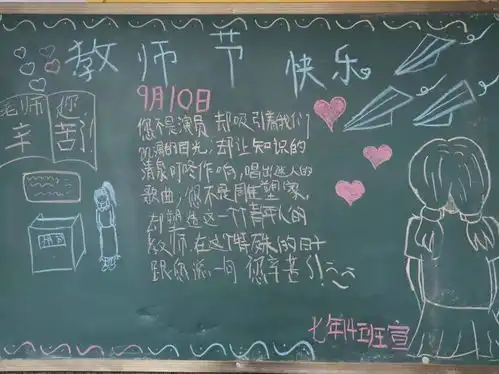 教师节快乐
9月10日
老师 您
辛苦了!
您不是演员,却吸引着我们
的目光,却让知识的
清泉叮咚作响,唱出迷人的
歌曲,您不是雕塑家,
却塑造这一个青年人的
教师,在这个特殊的日子
跟您说一向 您辛苦了!
七年14班宣